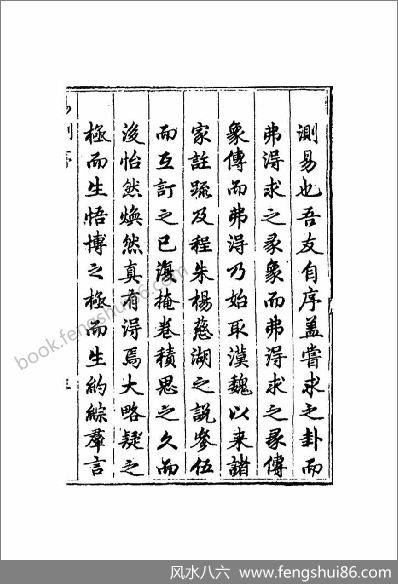 測易也吾友自序蓋嘗求之卦而
弗得求之彖象而弗得求之彖傳
象傳而弗得乃始取漢魏以來諸
家註疏及程朱楊慈湖之說參伍
而互訂之已復掩卷積思之久而
後怡然煥然真有得焉大略疑之
極而生悟博之極而生約綜羣言
book.fengshui86.com
风水八六：www.fengshui86.com